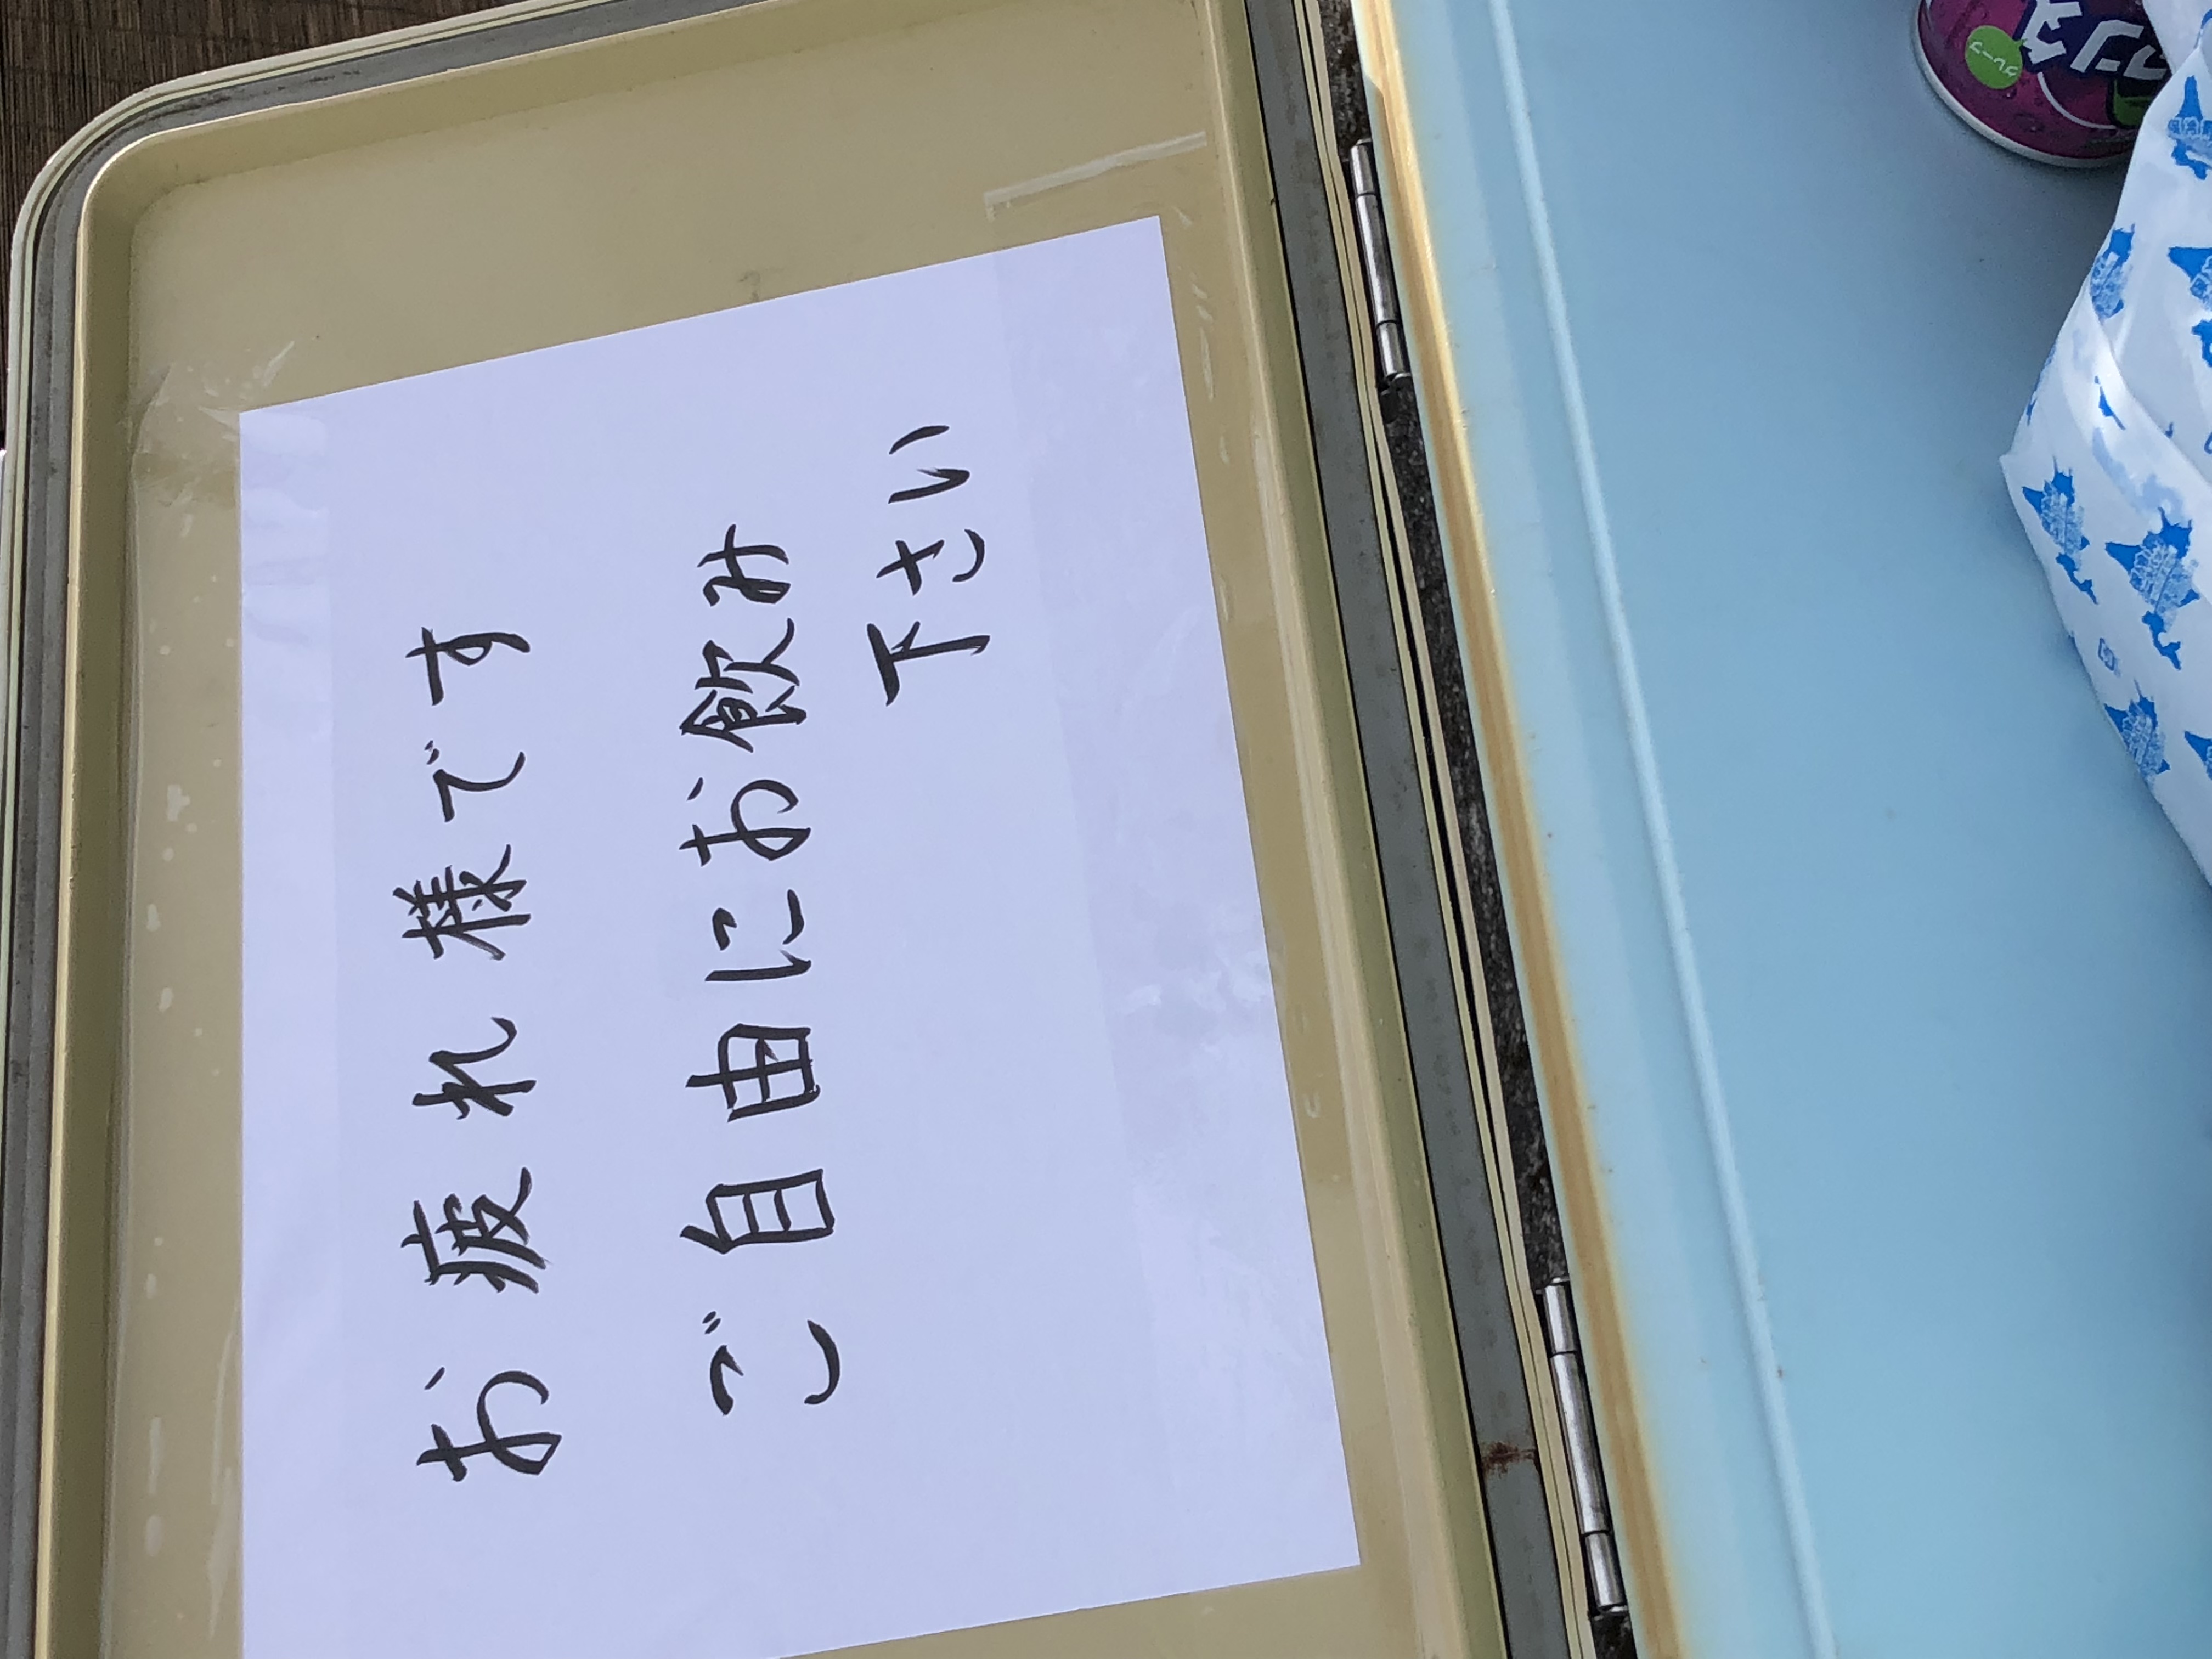 お疲れ様です
ご自由にお飲み
下さい
グレープ